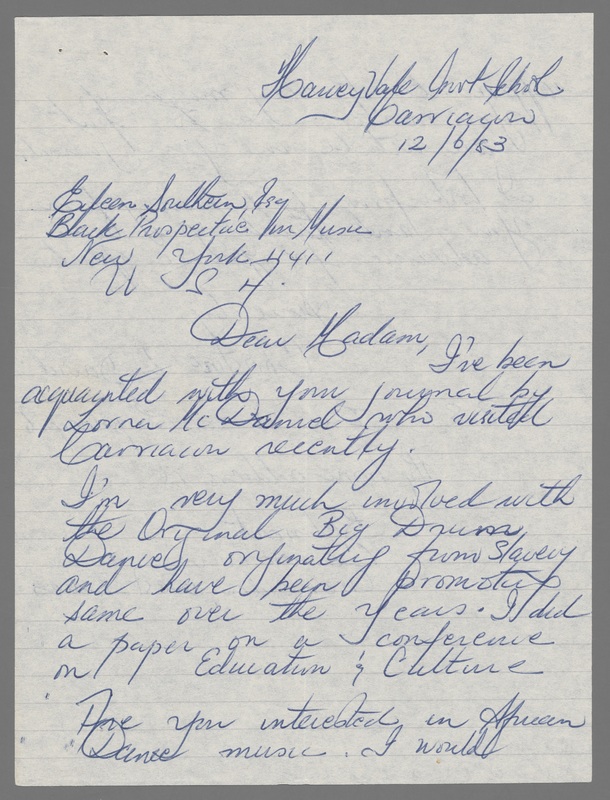 Harvey Vale Govt School
Carriacou
12/6/83
Eileen Southern, Esq
Black Prospective In Music
New York 11411
U S A.
Dear Madam,
I've been
acquainted with your journal by
Lorna McDaniel who visited
Carriacou recently.
I'm very much involved with
the Original Big Drum
Dance originating from Slavery
and have been promoting
same over the years. I did
a paper on a conference
on Education & Culture
Are you interested in African
Dance music. I would